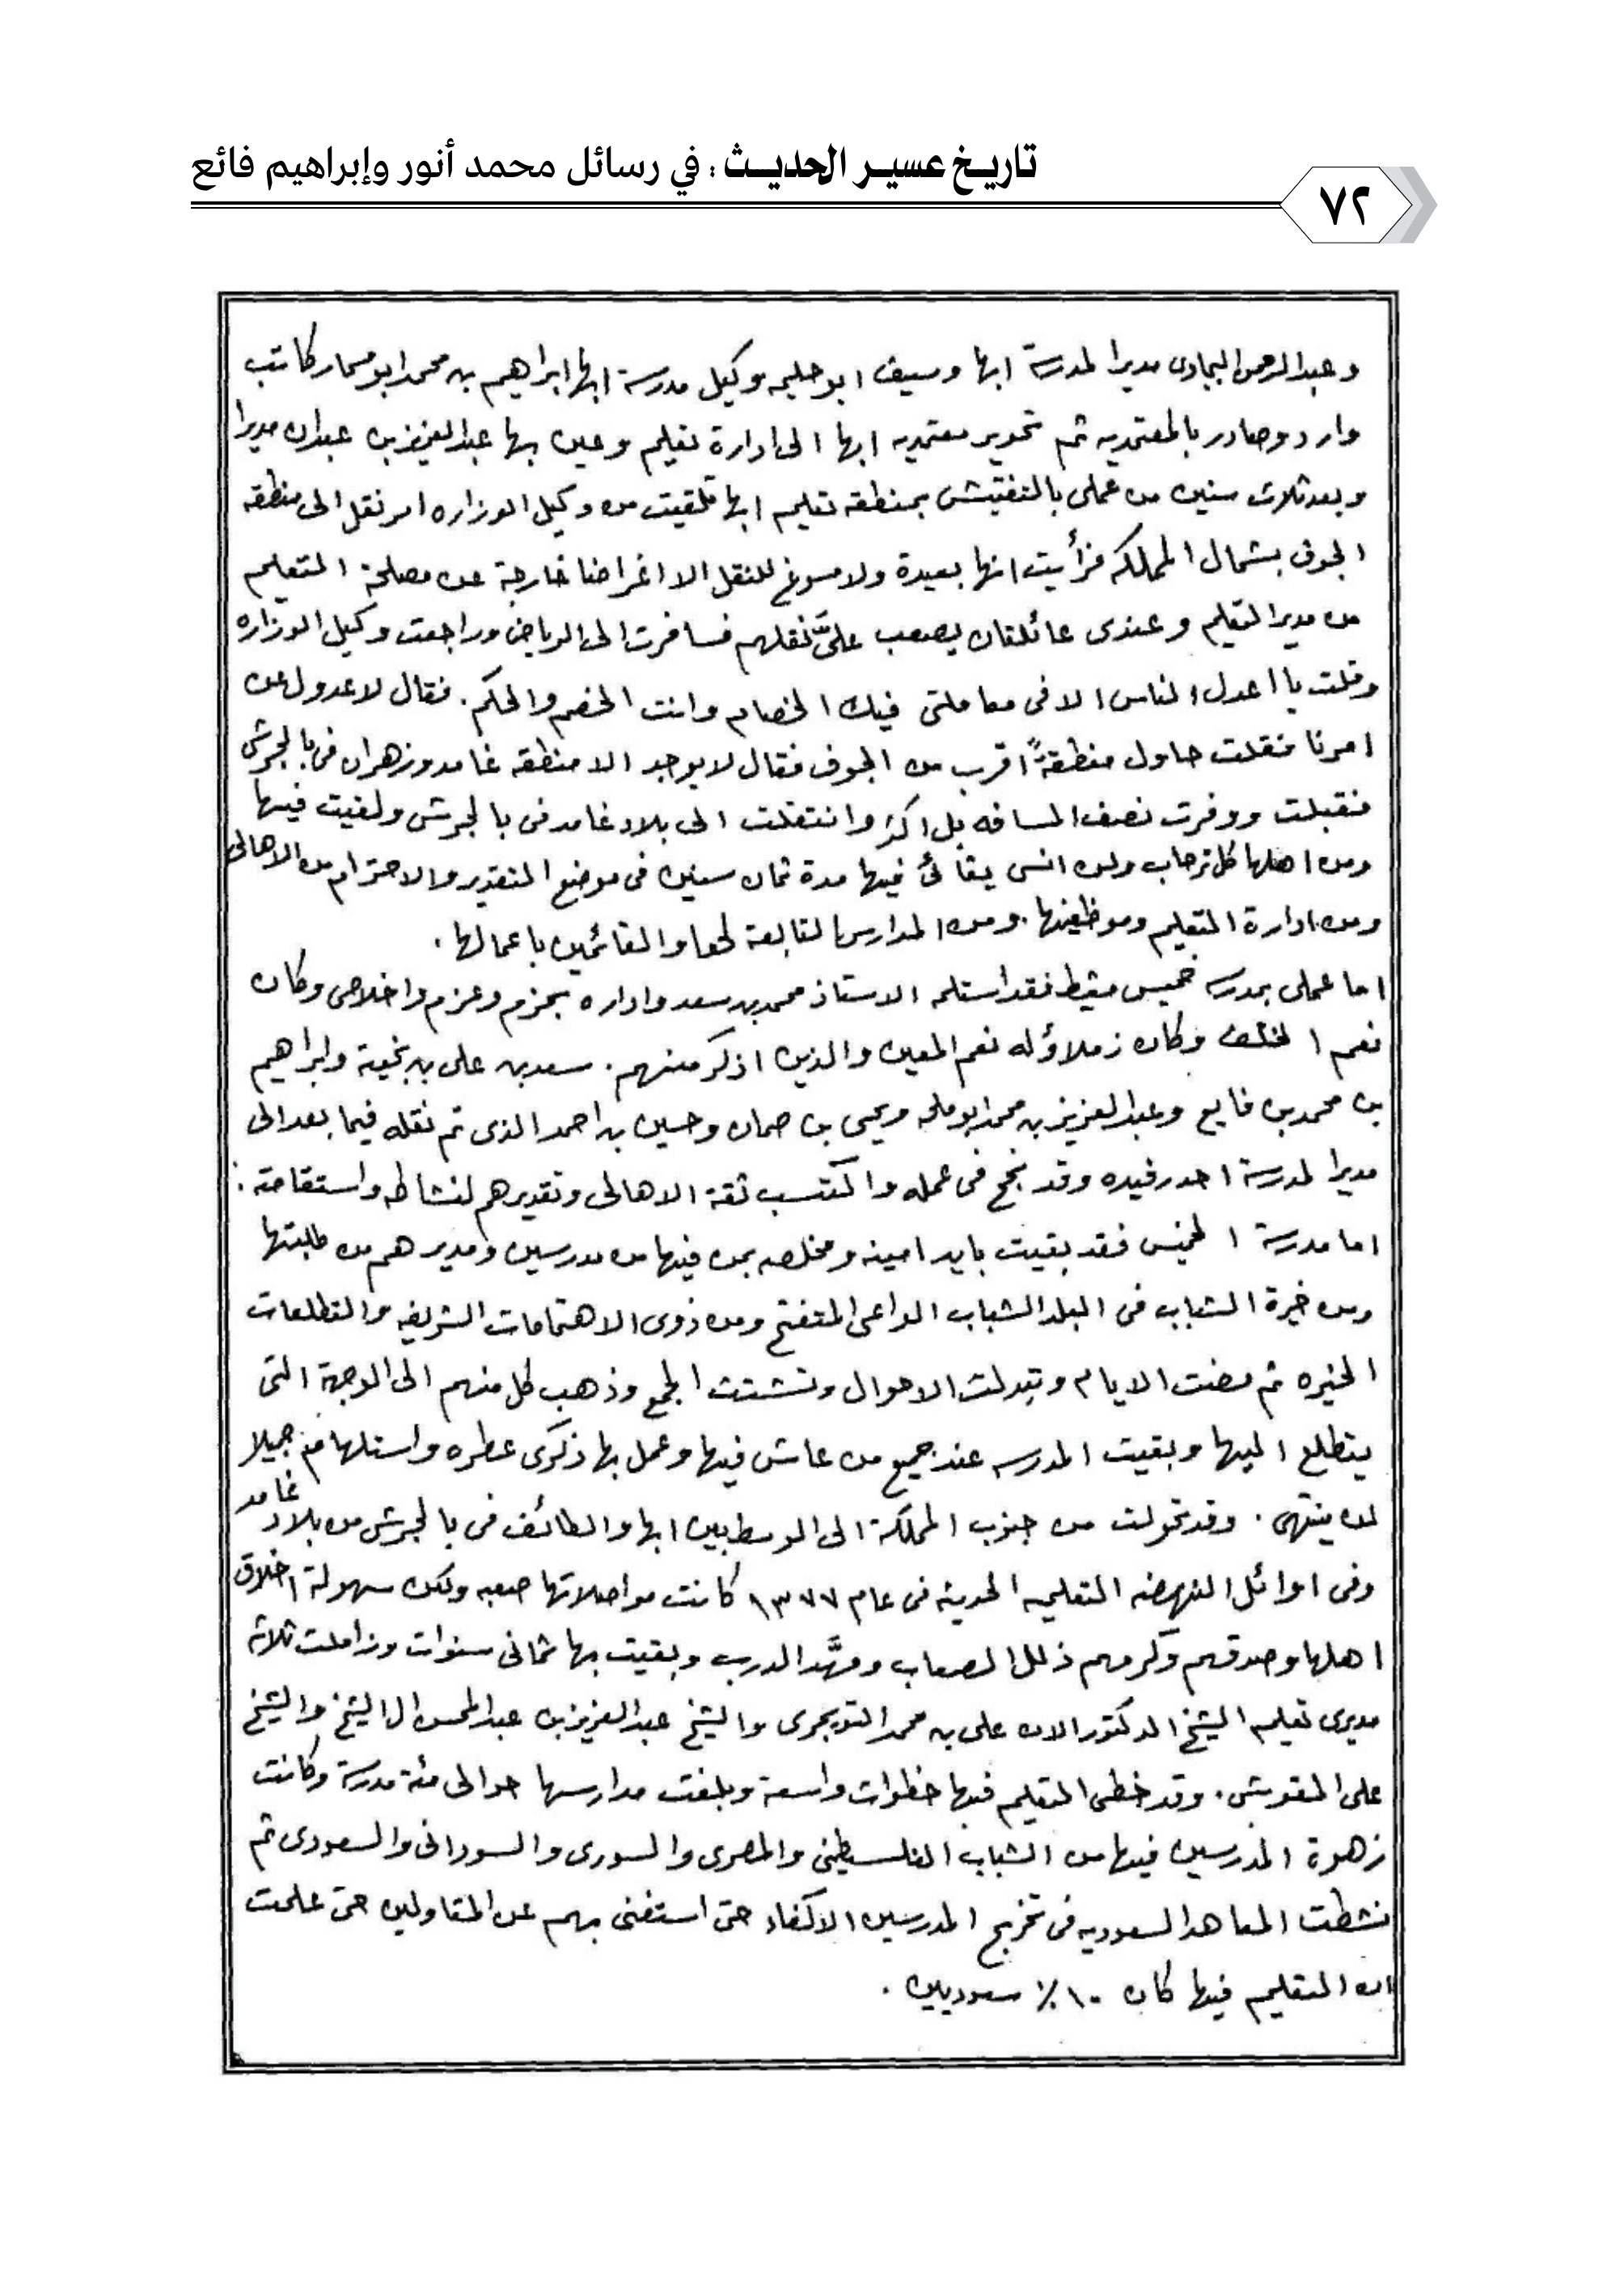 تاريخ عسير الحديث : في رسائل محمد أنور وإبراهيم فائع
٧٢
وعبدالرحمن البجادى مديرا لمدرسة ابها وسيف ابو حليمه وكيل مدرسة ابها ابراهيم بن محمد ابو مسمار كاتب
وارد وصادر بالمعتمديه ثم تحوير معتمديه ابها الى ادارة تعليم وعين بها عبدالعزيز بن عبدان مديرا
وبعد ثلاث سنين من عملى بالتفتيش بمنطقه تعليم ابها تلقيت من وكيل الوزاره امر نقل الى منطقه
الجوف بشمال المملكه فرأيت انها بعيدة ولا مسوغ للنقل الا اغراضا خارجة عن مصلحة التعليم
من مدير التعليم وعندى عائلتان يصعب علىَّ نقلهم فسافرت الى الرياض وراجعت وكيل الوزاره
وقلت يا اعدل الناس الا فى معاملتى فيك الخصام وانت الخصم والحكم . فقال لا عدول عن
امرنا فقلت حاول منطقةً اقرب من الجوف فقال لا يوجد الا منطقه غامد وزهران فى بالجرشى
فقبلت ووفرت نصف المسافه بل اكثر وانتقلت الى بلاد غامد فى بالجرشى ولقيت فيها
ومن اهلها كل ترحاب ولن انسى بقائى فيها مدة ثمان سنين فى موضع التقدير والاحترام من الاهالى
ومن ادارة التعليم وموظفيها . ومن المدارس التابعة لها والقائمين باعمالها .
اما عملى بمدرسه خميس مشيط فقد استلمه الاستاذ محمد بن سعد واداره بحزم وعزم واخلاص وكان
نعم الخلف وكان زملاؤله نعم المعين والذين اذكر منهم . سعد بن على بن بخيتة وابراهيم
بن محمد بن فايع وعبدالعزيز بن محمد ابوملحه ويحيى بن صمان وحسين بن احمد الذى تم نقله فيما بعد الى
مديرا لمدرسة احد رفيده وقد نجح فى عمله واكتسب ثقة الاهالى وتقديرهم لنشاطه واستقامته .
اما مدرسة الخميس فقد بقيت بايد امينه ومخلصه بمن فيها من مدرسين ومديرهم من طلبتها
ومن خيرة الشباب فى البلد الشباب الواعى المتفتح ومن ذوى الاهتمامات الشريفه والتطلعات
الخيره ثم مضت الايام وتبدلت الاحوال وتشتت الجمع وذهب كل منهم الى الوجهة التى
يتطلع اليها وبقيت المدرسه عند جميع من عاش فيها وعمل بها ذكرى عطره واستلهام جميلا
لن ينتهى . وقد تحولت من جنوب المملكة الى الوسط بين ابها والطائف فى بالجرشى من بلاد غامد
وفى اوائل النهضه التعليميه الحديثه فى عام ١٣٧٧ كانت مواصلاتها صعبه ولكن سهولة اخلاق
اهلها وصدقهم وكرمهم ذلل الصعاب ومهَّد الدرب وبقيت بها ثمانى سنوات وزاملت ثلاثه
مديرى تعليم الشيخ الدكتور الان على بن محمد التويجرى والشيخ عبدالعزيز بن عبدالمحسن ال الشيخ والشيخ
على المقوشى . وقد خطى التعليم فيها خطوات واسعة وبلغت مدارسها حوالى مئة مدرسة وكانت
زهوة المدرسين فيها من الشباب الفلسطينى والمصرى والسورى والسودانى والسعودى ثم
نشطت المعاهد السعوديه فى تخريج المدرسين الاكفاء حتى استغنى بهم عن المتقاولين حتى علمت
ان التعليم فيها كان ١٠٠٪ سعوديين .